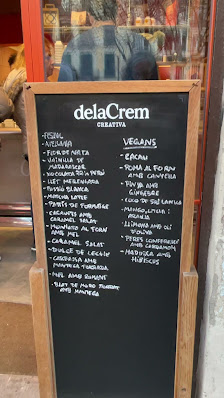 delaCrem
CREATIVA
AVELLANA
FIOR DE LATTE
VAINILLA DE
MADAGASCAR
XOCOLATA 70% PERÚ
LLET MERENGADA
RUSSA BLANCA
MATCHA LATTE
PASTÍS DE FORMATGE
CACAUETS AMB
CARAMEL SALAT
MONIATO AL FORN
AMB MEL
CARAMEL SALAT
DULCE DE LECHE
AMB
MANTEGA TORRADA
MEL AMB ROMANÍ
BLAT DE MORO TORRAT
AMB MANTEGA
VEGANS
CACAU
POMA AL FORN
AMB CANYELLA
PINYA AMB
GINGEBRE
COCO DE SRI LANKA
MANGO, LITXI I
LLIMONA AMB OLI
D'OLIVA
PERES CONFERENCE
AMB CARDAMOM
MADUIXA AMB
HIBISCUS